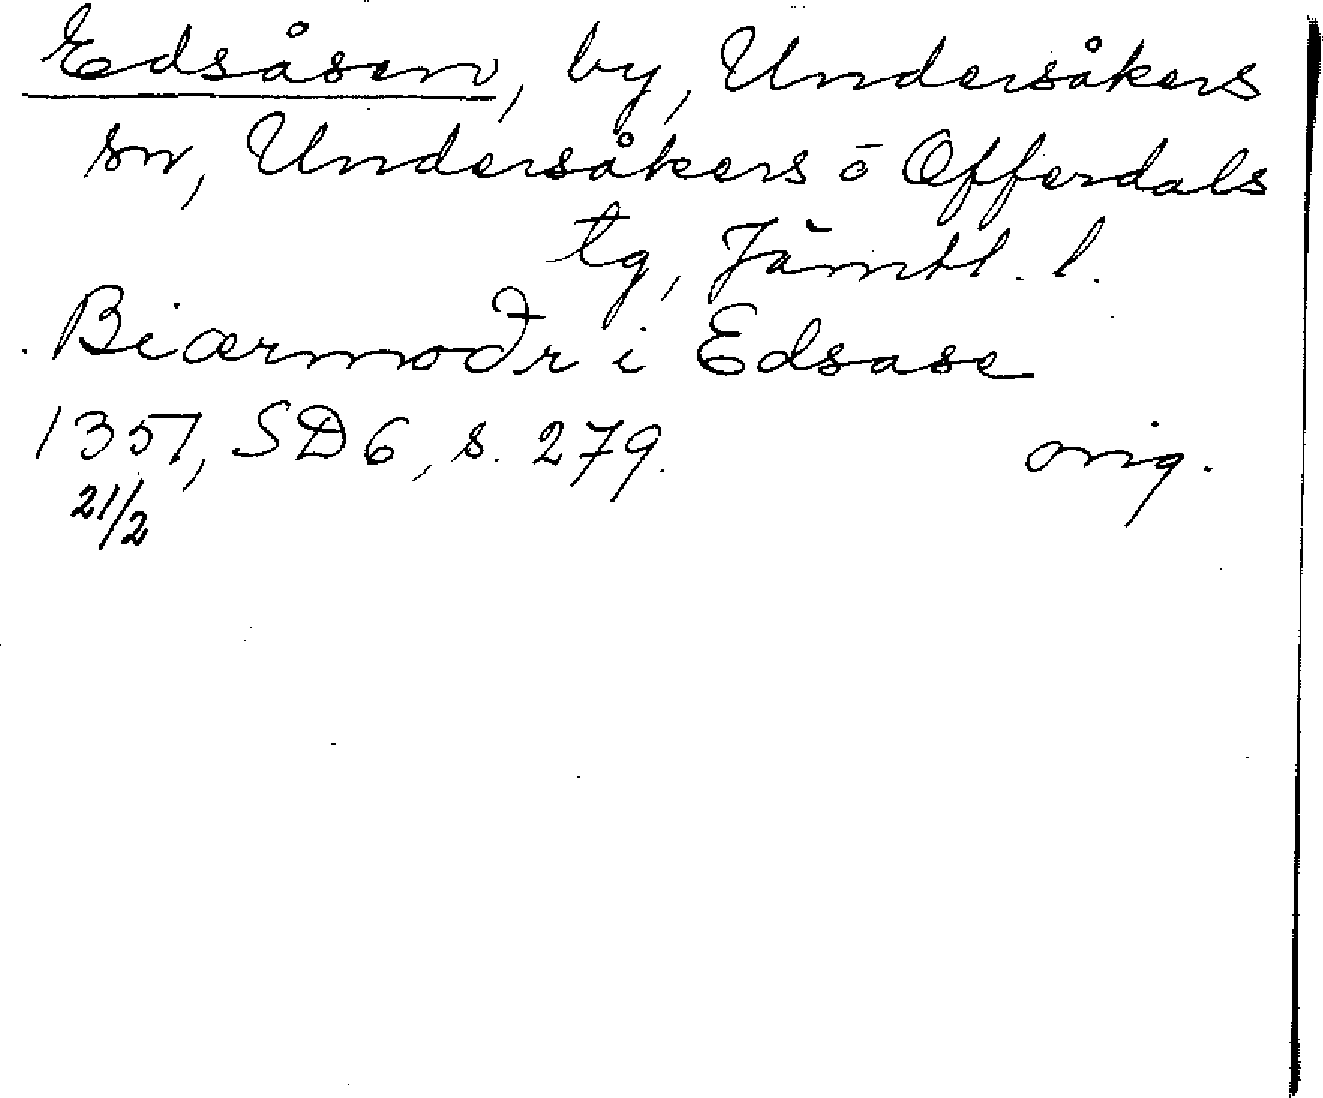 Edsåsen, by, Undersåkers
sn, Undersåkers o Offerdals
tg, Jämtl. l.
Biærmoðr i Edsase
1357, SD 6, s. 279. orig.
21/2